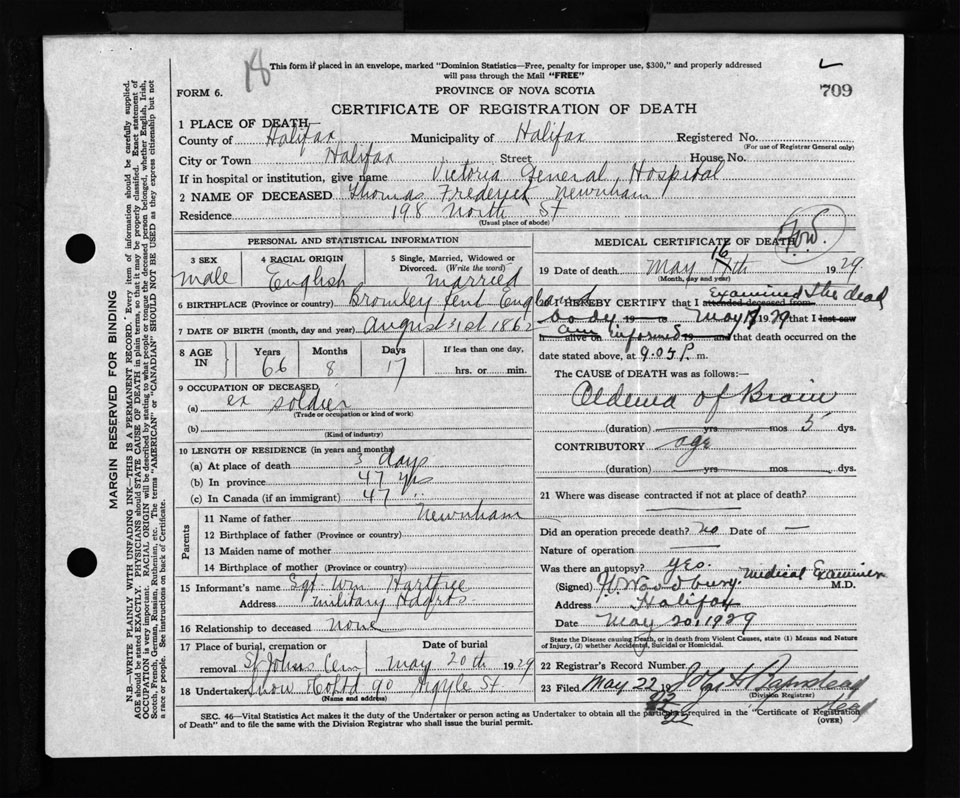 18
This form if placed in an envelope, marked "Dominion Statistics—Free, penalty for improper use, $300," and properly addressed
will pass through the Mail "FREE"
709
FORM 6.
PROVINCE OF NOVA SCOTIA
CERTIFICATE OF REGISTRATION OF DEATH
1 PLACE OF DEATH
County of Halifax Municipality of Halifax Registered No.
(For use of Registrar General only)
City or Town Halifax Street House No.
If in hospital or institution, give name Victoria General Hospital
2 NAME OF DECEASED Thomas Frederick Newnham
Residence 198 North St
(Usual place of abode)
PERSONAL AND STATISTICAL INFORMATION
3 SEX 4 RACIAL ORIGIN 5 Single, Married, Widowed or
Divorced. (Write the word)
male English married
6 BIRTHPLACE (Province or country) Bromley Kent England
7 DATE OF BIRTH (month, day and year) August 31st 1862
8 AGE IN Years Months Days If less than one day,
66 8 17 hrs. or min.
9 OCCUPATION OF DECEASED
(a) ex soldier
(Trade or occupation or kind of work)
(b)
(Kind of industry)
10 LENGTH OF RESIDENCE (in years and months)
(a) At place of death 3 days
(b) In province 47 yrs
(c) In Canada (if an immigrant) 47 "
Parents
11 Name of father Newnham
12 Birthplace of father (Province or country)
13 Maiden name of mother
14 Birthplace of mother (Province or country)
15 Informant's name Sgt. Wm. Hartree
Address military Hdqrts.
16 Relationship to deceased none
17 Place of burial, cremation or Date of burial
removal St Johns Cem May 20th 1929
18 Undertaker Snow Co Ltd 90 Argyle St
(Name and address)
MEDICAL CERTIFICATE OF DEATH
16
19 Date of death May 17th 1929
(Month, day and year)
I HEREBY CERTIFY that I attended deceased from examined the dead
body 19 to May 1929 that I last saw
h alive on am informed 19 and that death occurred on the
date stated above, at 9.05 P. m.
The CAUSE of DEATH was as follows:—
Oedema of Brain
(duration) yrs mos 5 dys.
CONTRIBUTORY age
(duration) yrs mos dys.
21 Where was disease contracted if not at place of death?
Did an operation precede death? no Date of —
Nature of operation —
Was there an autopsy? yes.
(Signed) Woodbury. Medical Examiner M.D.
Address Halifax
Date May 20, 1929
State the Disease causing Death, or in death from Violent Causes, state (1) Means and Nature
of Injury, (2) whether Accidental, Suicidal or Homicidal.
22 Registrar's Record Number
23 Filed May 22 19
(Division Registrar)
SEC. 46—Vital Statistics Act makes it the duty of the Undertaker or person acting as Undertaker to obtain all the particulars required in the "Certificate of Registration
of Death" and to file the same with the Division Registrar who shall issue the burial permit.
(OVER)
MARGIN RESERVED FOR BINDING
N.B.—WRITE PLAINLY WITH UNFADING INK—THIS IS A PERMANENT RECORD. Every item of information should be carefully supplied.
AGE should be stated EXACTLY. PHYSICIANS should STATE CAUSE OF DEATH in plain terms, so that it may be properly classified. Exact statement of
OCCUPATION is very important. RACIAL ORIGIN will be described by stating to what people or tongue the deceased person belonged, whether English, Irish,
Scotch, French, German, Russian, Ruthenian, etc. The terms "AMERICAN" or "CANADIAN" SHOULD NOT BE USED as they express citizenship but not
a race or people. See instructions on back of Certificate.